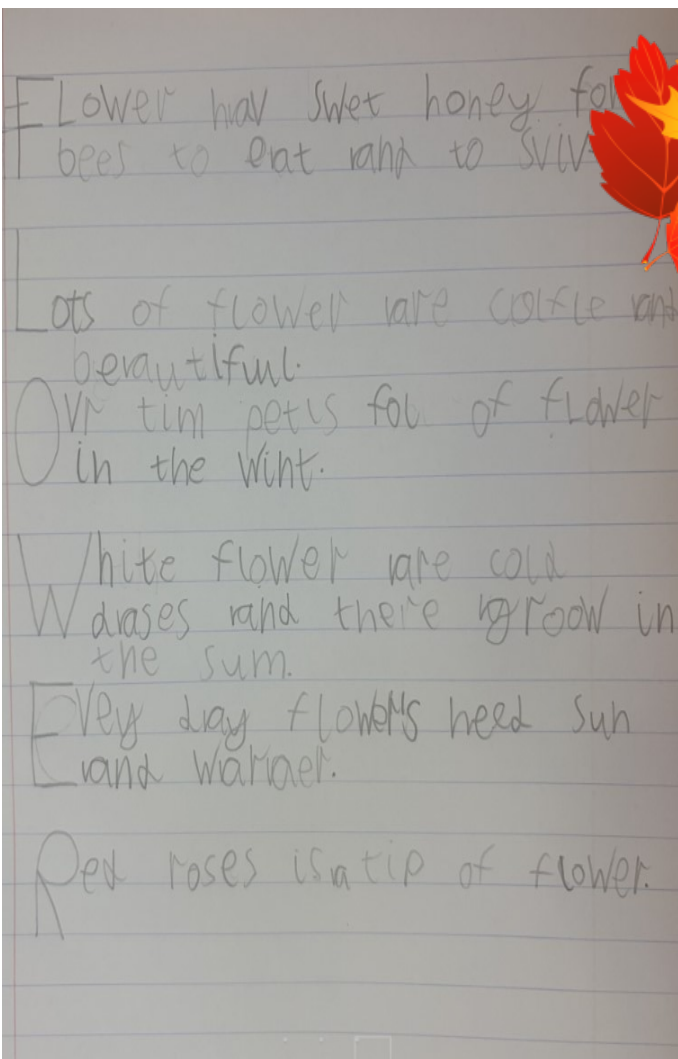 FLower hav swet honey for
bees to eat and to sviv
Lots of flower are colfle and
beautiful.
Ovr tim petls fol of flower
in the wint.
White flower are cold
dases and there groow in
the sum.
Evey day flowers need sun
and wariaer.
Red roses is a tip of flower.